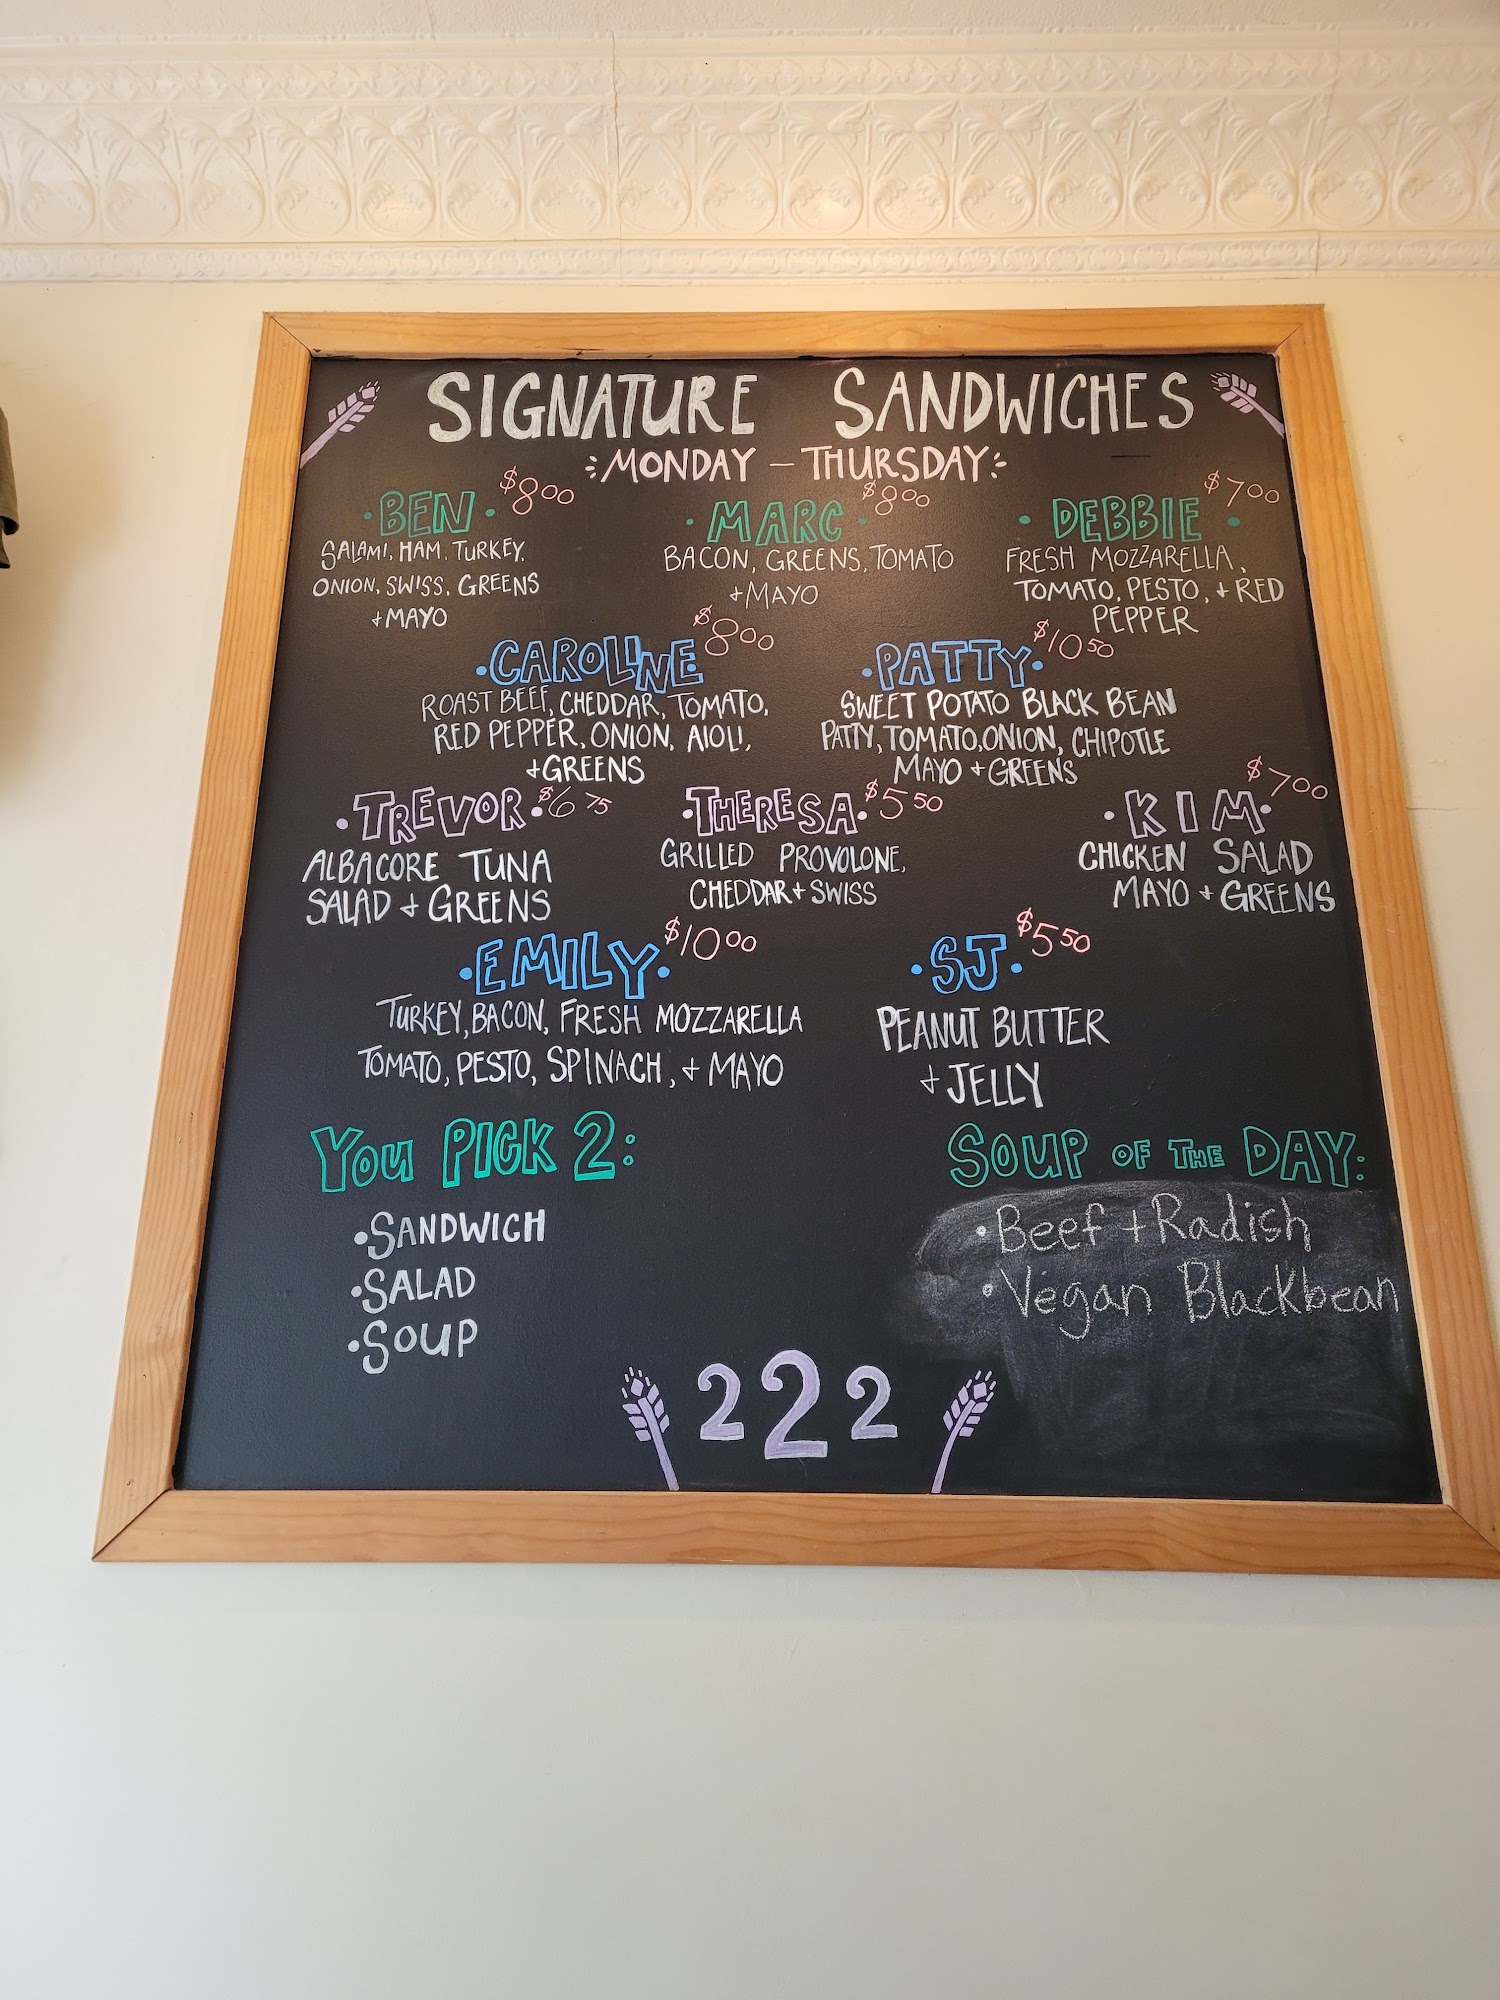 SIGNATURE SANDWICHES
MONDAY - THURSDAY
BEN $8.00
SALAMI, HAM, TURKEY,
ONION, SWISS, GREENS
+ MAYO
MARC $8.00
BACON, GREENS, TOMATO
+ MAYO
DEBBIE $7.00
FRESH MOZZARELLA,
TOMATO, PESTO, + RED
PEPPER
CAROLINE $8.00
ROAST BEEF, CHEDDAR, TOMATO,
RED PEPPER, ONION, AIOLI,
+ GREENS
PATTY $10.50
SWEET POTATO BLACK BEAN
PATTY, TOMATO, ONION, CHIPOTLE
MAYO + GREENS
TREVOR $6.75
ALBACORE TUNA
SALAD + GREENS
THERESA $5.50
GRILLED PROVOLONE,
CHEDDAR + SWISS
KIM $7.00
CHICKEN SALAD
MAYO + GREENS
EMILY $10.00
TURKEY, BACON, FRESH MOZZARELLA
TOMATO, PESTO, SPINACH, + MAYO
SJ $5.50
PEANUT BUTTER
+ JELLY
YOU PICK 2:
• SANDWICH
• SALAD
• SOUP
SOUP OF THE DAY:
• Beef + Radish
• Vegan Blackbean
222